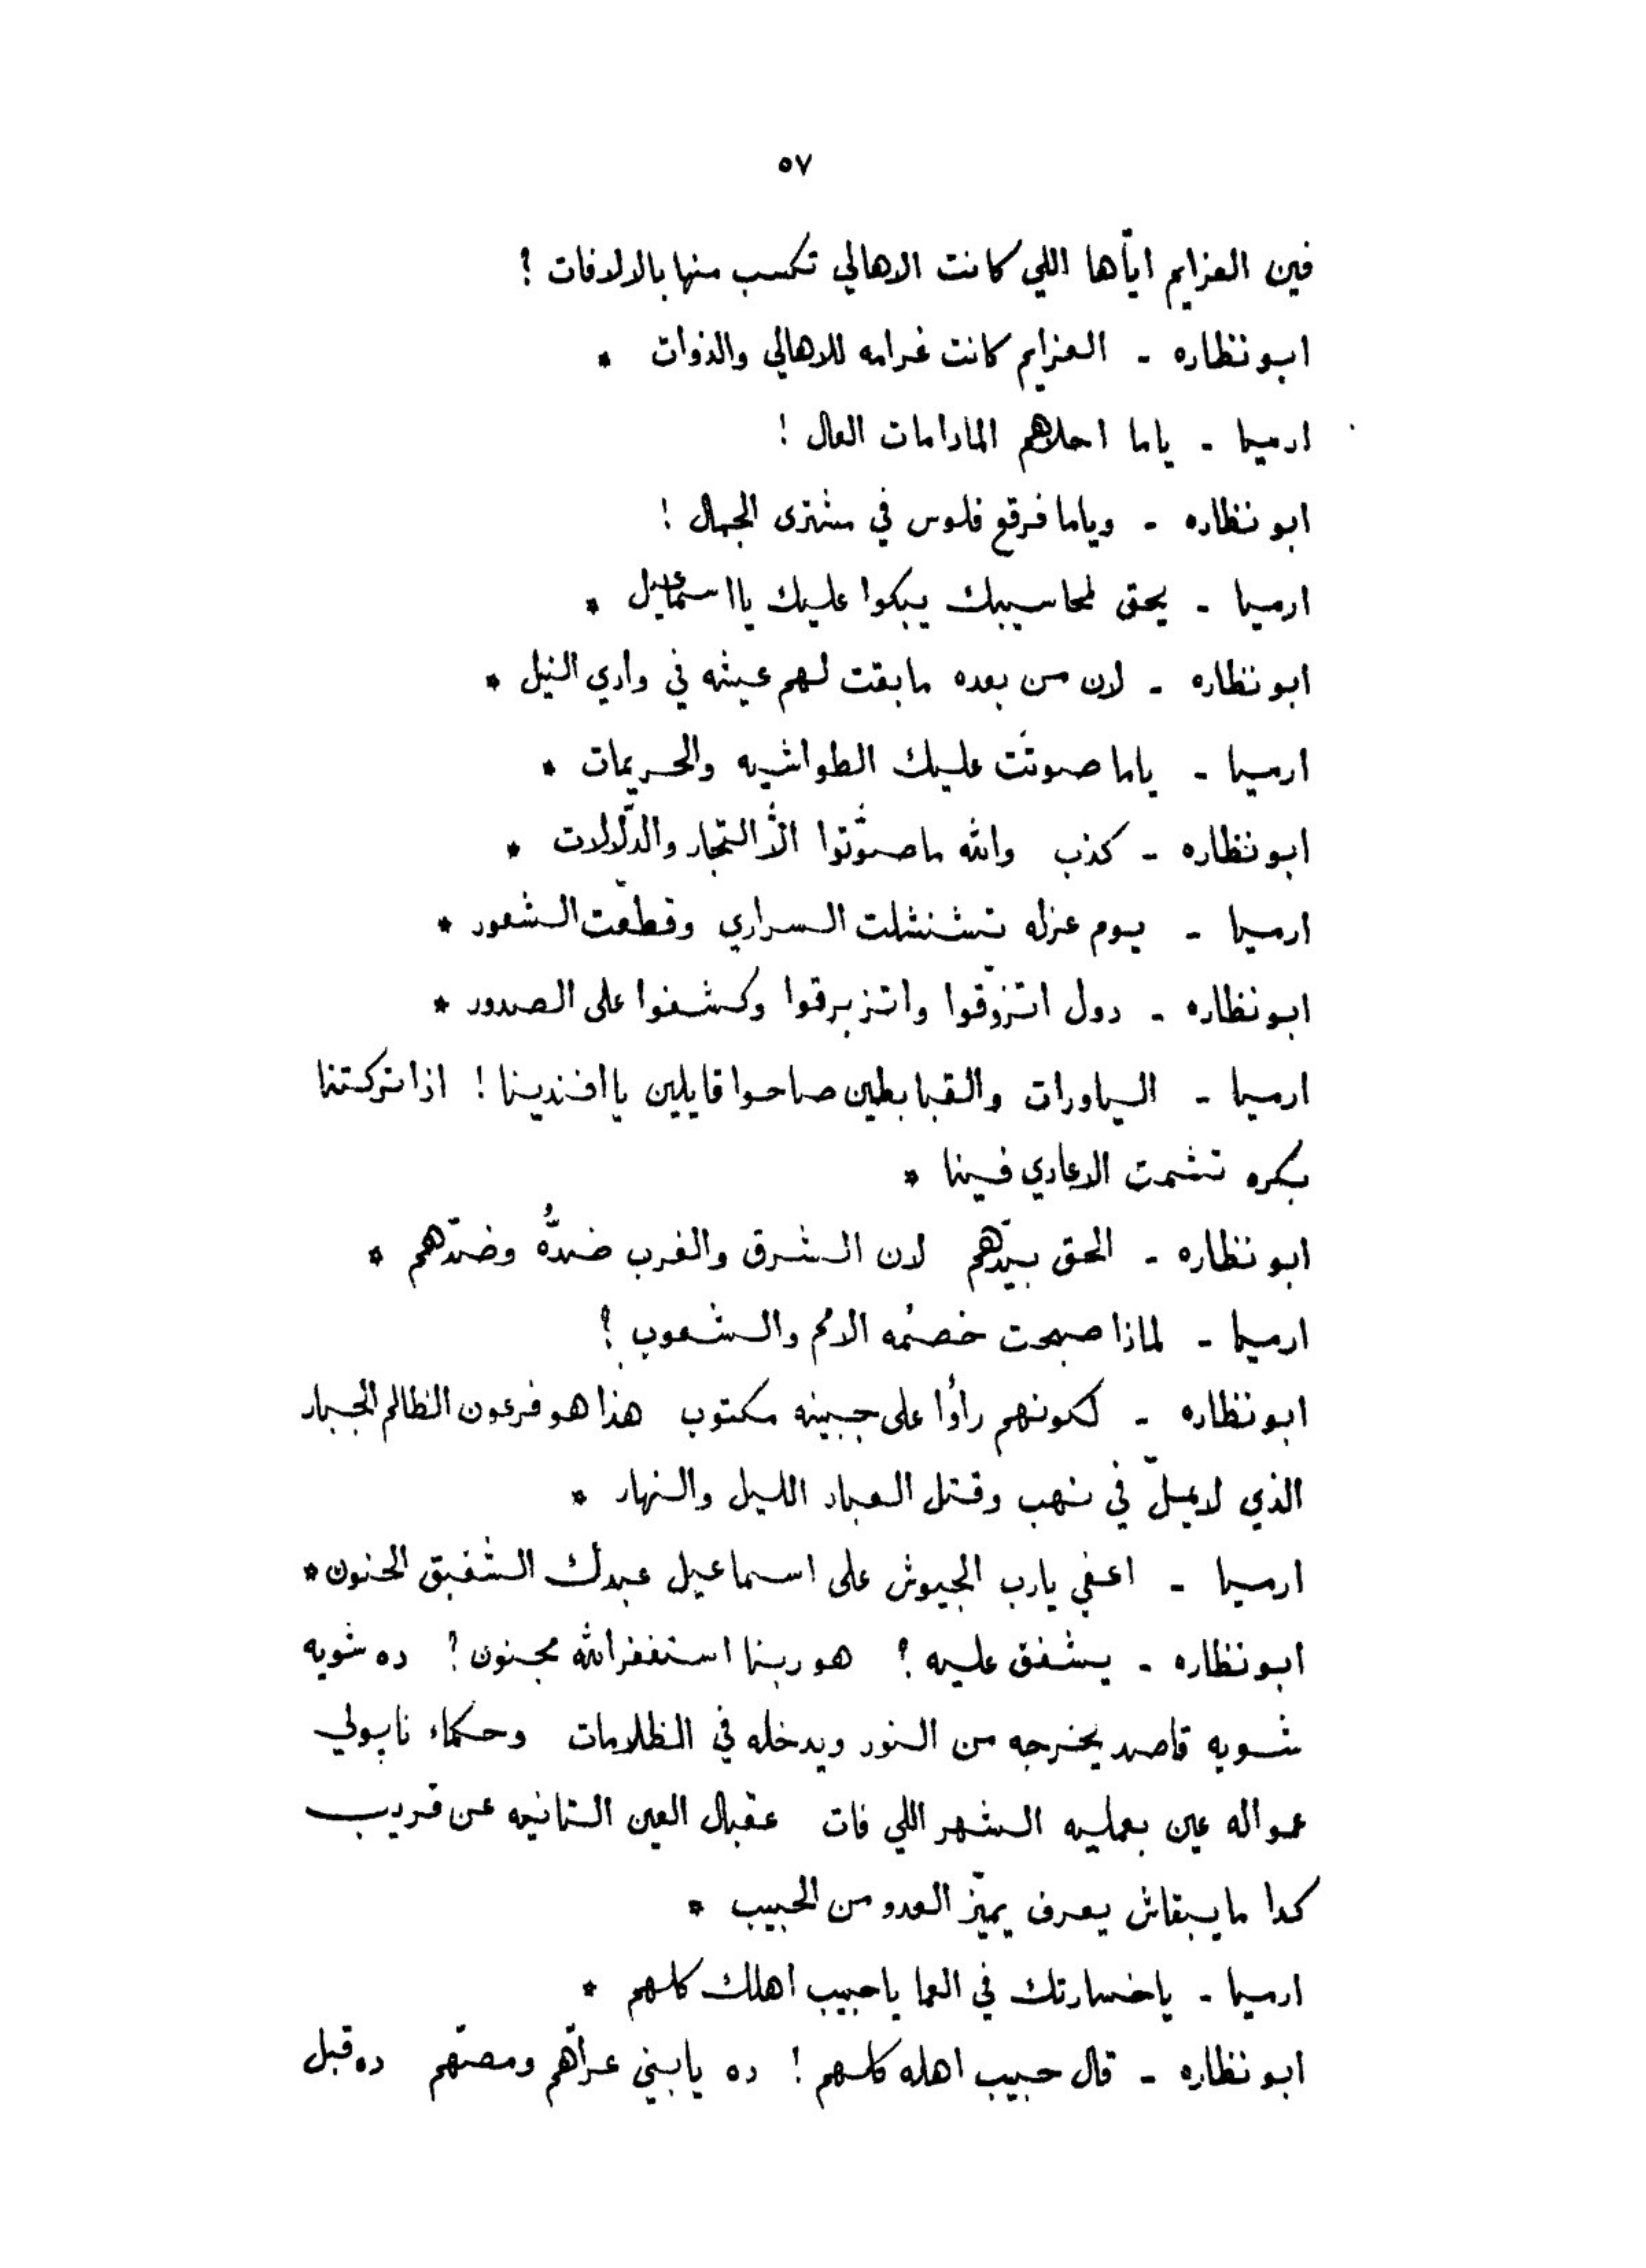 ٥٧
فين العزايم ايّاها اللي كانت الاهالي تكسب منها بالالافات ؟
ابو نظاره - العزايم كانت غرامه للاهالي والذوات *
ارميا - ياما احلاهم المادامات العال !
ابو نظاره - وياما فرقع فلوس في مشترى الجمال !
ارميا - يحق لمحاسيبك يبكوا عليك يا اسماعيل *
ابو نظاره - لان من بعده ما بقت لهم عيشه في وادي النيل *
ارميا - ياما صوتت عليك الطواشيه والحريمات *
ابو نظاره - كذب والله ما صوّتوا الّا التجار والدلّالات *
ارميا - يوم عزله تشنشلت السراري وقطّعت الشعور *
ابو نظاره - دول اتزوّقوا واتزبرقوا وكشفوا على الصدور *
ارميا - الياورات والقبابطين صاحوا قايلين يا افندينا ! اذا تركتنا
بكره تشمت الاعادي فينا *
ابو نظاره - الحق بيدّهم لان الشرق والغرب ضدُّه وضدّهم *
ارميا - لماذا صبحت خصمُه الامم والشعوب ؟
ابو نظاره - لكونهم رأوا على جبينه مكتوب هذا هو فرعون الظالم الجبار
الذي لا يملّ في نهب وقتل العباد الليل والنهار *
ارميا - اعفي يا رب الجيوش على اسماعيل عبدك الشفيق الحنون *
ابو نظاره - يشفق عليه ؟ هو ربنا استغفر الله مجنون ؟ ده شويه
شويه قاصد يخرجه من النور ويدخله في الظلامات وحكماء ناپولي
عمواله عين بعمليه الشهر اللي فات عقبال العين التانيه عن قريب
كدا ما يبقاش يعرف يميّز العدو من الحبيب *
ارميا - يا خسارتك في العما يا حبيب اهلك كلهم *
ابو نظاره - قال حبيب اهله كلهم ! ده يا بني عرّاهم ومصّهم ده قبل